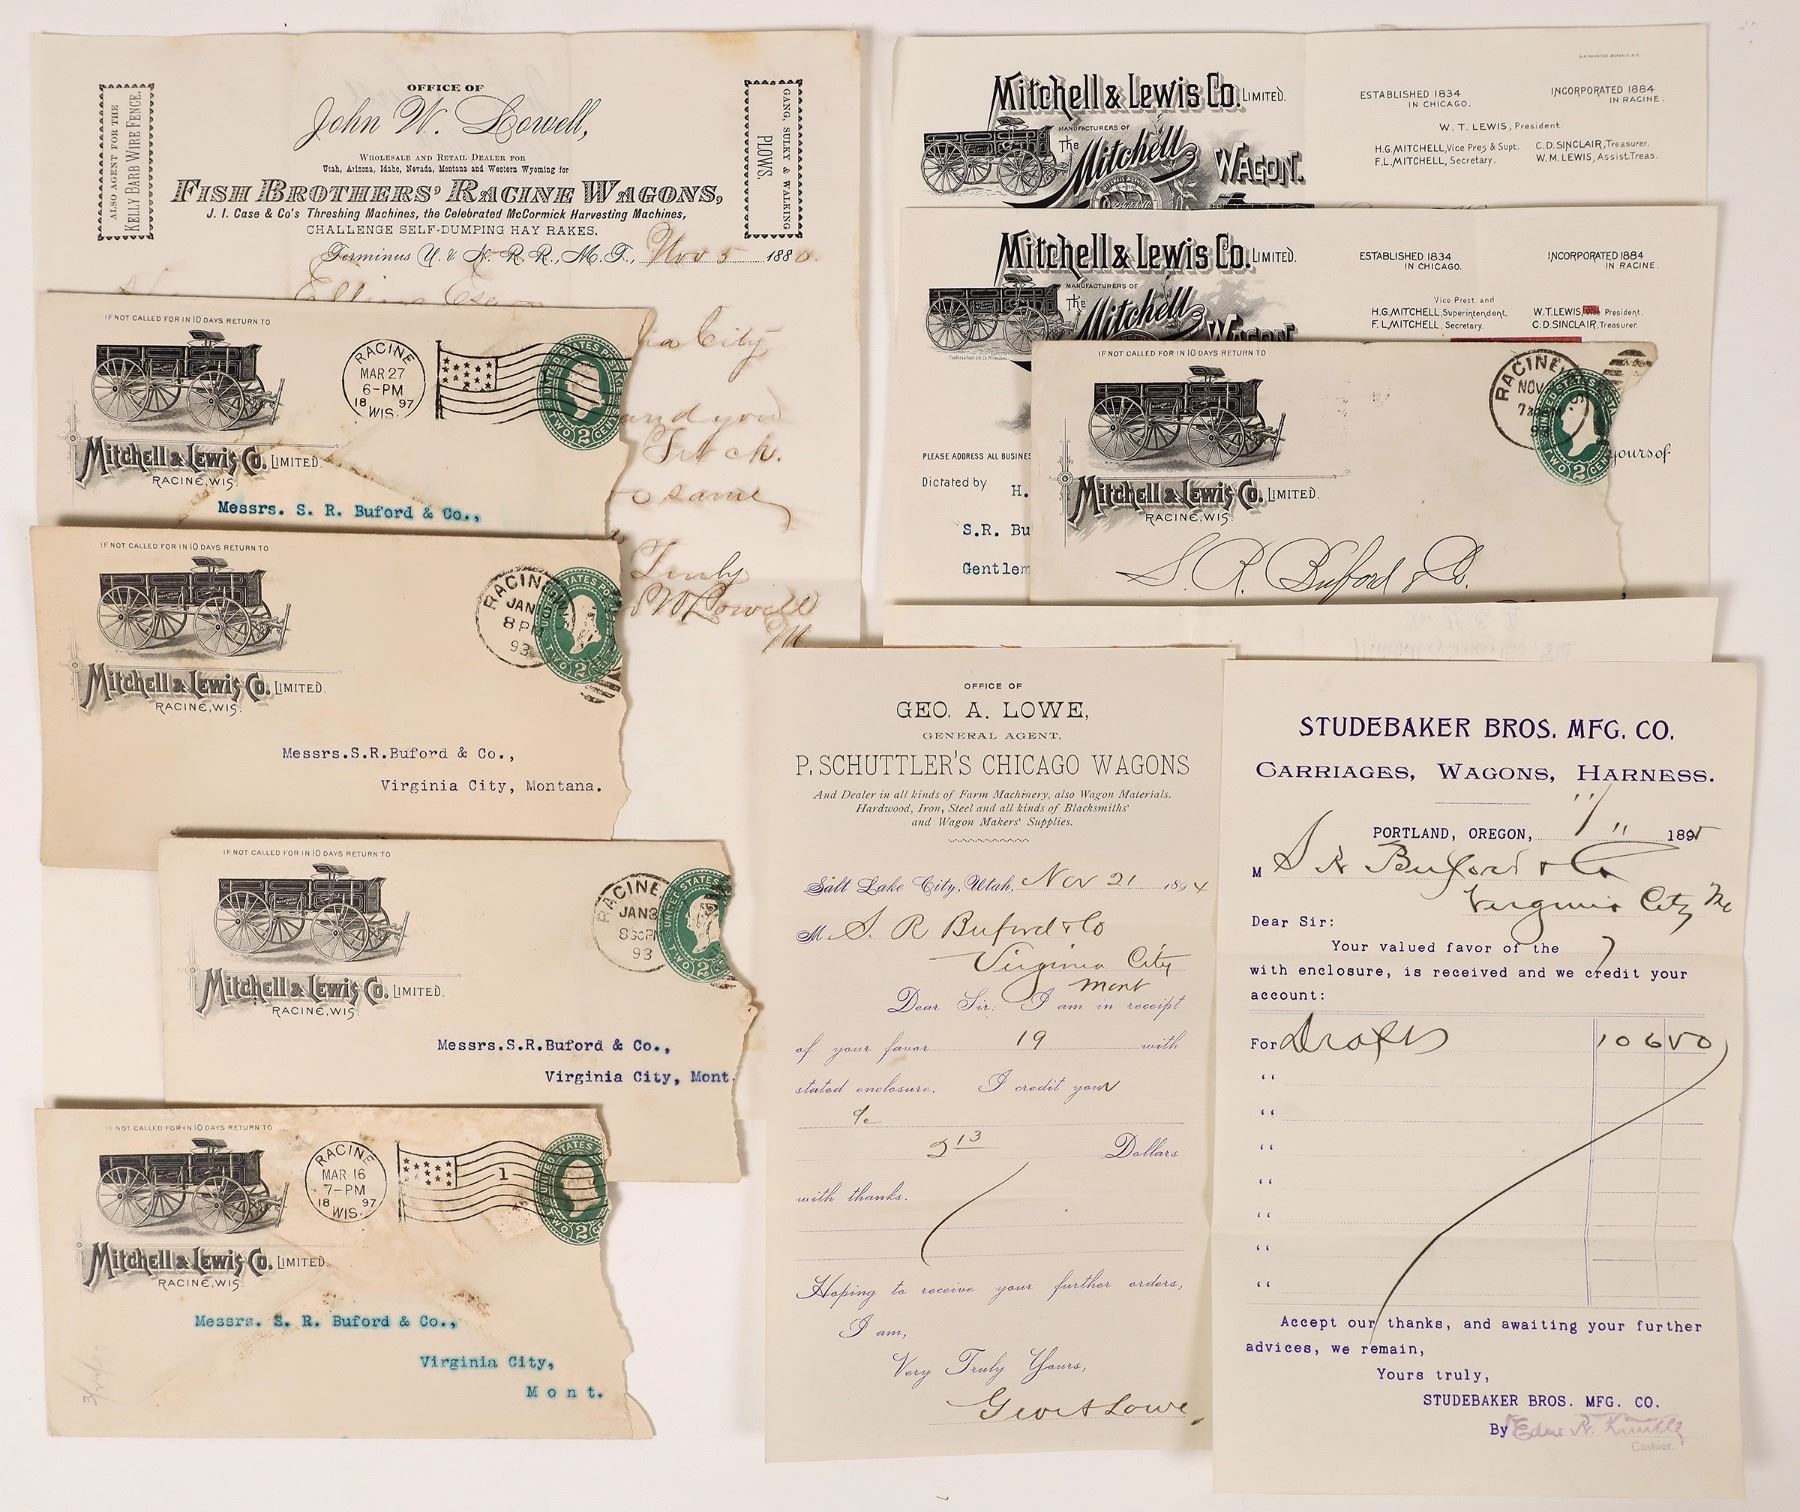 ALSO AGENT FOR THE
KELLY BARB WIRE FENCE.
OFFICE OF
John W. Lowell,
WHOLESALE AND RETAIL DEALER FOR
Utah, Arizona, Idaho, Nevada, Montana and Western Wyoming for
FISH BROTHERS' RACINE WAGONS,
J. I. Case & Co's Threshing Machines, the Celebrated McCormick Harvesting Machines,
CHALLENGE SELF-DUMPING HAY RAKES.
GANG, SULKY & WALKING
PLOWS.
Terminus U. & N. R. R., M. T., Nov 5 1880.
Elling Esq
City
and you
same
Truly
JW Lowell
IF NOT CALLED FOR IN 10 DAYS RETURN TO
Mitchell & Lewis Co. LIMITED.
RACINE, WIS.
RACINE
MAR 27
6-PM
18 97
WIS.
UNITED STATES POSTAGE
TWO 2 CENTS
Messrs. S. R. Buford & Co.,
IF NOT CALLED FOR IN 10 DAYS RETURN TO
Mitchell & Lewis Co. LIMITED.
RACINE, WIS.
RACINE
JAN
8 PM
93
UNITED STATES
TWO 2
Messrs.S.R.Buford & Co.,
Virginia City, Montana.
IF NOT CALLED FOR IN 10 DAYS RETURN TO
Mitchell & Lewis Co. LIMITED.
RACINE, WIS.
RACINE
JAN3
830PM
93
UNITED STATES
TWO 2
Messrs.S.R.Buford & Co.,
Virginia City, Mont.
IF NOT CALLED FOR IN 10 DAYS RETURN TO
Mitchell & Lewis Co. LIMITED.
RACINE, WIS.
RACINE
MAR 16
7-PM
18 97
WIS.
1
UNITED STATES
TWO 2
Messrs. S. R. Buford & Co.,
Virginia City,
Mont.
Mitchell & Lewis Co. LIMITED.
MANUFACTURERS OF
The Mitchell WAGON.
ESTABLISHED 1834
IN CHICAGO.
INCORPORATED 1884
IN RACINE.
W. T. LEWIS, President.
H.G. MITCHELL, Vice Pres & Supt.
C.D. SINCLAIR, Treasurer.
F.L. MITCHELL, Secretary.
W.M. LEWIS, Assist. Treas.
Mitchell & Lewis Co. LIMITED.
MANUFACTURERS OF
The Mitchell WAGON
ESTABLISHED 1834
IN CHICAGO.
INCORPORATED 1884
IN RACINE.
Vice Prest. and
H.G. MITCHELL, Superintendent.
W.T. LEWIS, President.
F. L. MITCHELL, Secretary.
C.D. SINCLAIR, Treasurer.
PLEASE ADDRESS ALL BUSINE
Dictated by H.
S.R. Bu
Gentlem
yours of
IF NOT CALLED FOR IN 10 DAYS RETURN TO
Mitchell & Lewis Co. LIMITED.
RACINE, WIS.
RACINE
NOV
730PM
UNITED STATES POSTA
TWO 2 CENTS
S. R. Buford & Co.
OFFICE OF
GEO. A. LOWE,
GENERAL AGENT,
P. SCHUTTLER'S CHICAGO WAGONS
And Dealer in all kinds of Farm Machinery, also Wagon Materials.
Hardwood, Iron, Steel and all kinds of Blacksmiths'
and Wagon Makers' Supplies.
Salt Lake City, Utah, Nov 21 1894
M S. R Buford & Co
Virginia City
Mont
Dear Sir: I am in receipt
of your favor 19 with
stated enclosure. I credit your
%
Dollars
with thanks.
Hoping to receive your further orders,
I am,
Very Truly Yours,
Geo A Lowe
STUDEBAKER BROS. MFG. CO.
CARRIAGES, WAGONS, HARNESS.
PORTLAND, OREGON, 11/11 1895
M S R Buford & Co
Virginia City
Dear Sir:
Your valued favor of the 7
with enclosure, is received and we credit your
account:
For Drafts 10650
"
"
"
"
"
"
"
Accept our thanks, and awaiting your further
advices, we remain,
Yours truly,
STUDEBAKER BROS. MFG. CO.
By
Cashier.